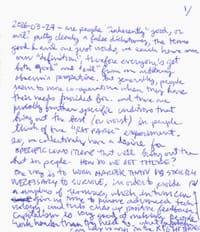 1/
2026-03-29 - are people "inherently" good, or
evil? Partly clearly, a false dichotomy, the terms
good & evil are just words, we each have our
own "definition", therefore everyone's got
both "good" and "evil" from an outside
observer's perspective. But generally, people
seem to more co-operative when they have
their needs provided for, and there are
probably other specific conditions that
bring out the best (or worst) in people.
Think of the "RAT PARK" experiment.
So, we collectively have a desire for
SPECIFIC conditions that will bring out the
best in people. HOW DO WE GET THERE?
One way is to WORK HARDER THAN IS STRICTLY
NECESSARY TO SURVIVE, in order to provide
a surplus of resources, which in turn can
give us time to pursue advanced tech
and this ends up positive feedback.
Capitalism is very good at making people
work harder than they need to
in the RIGHT